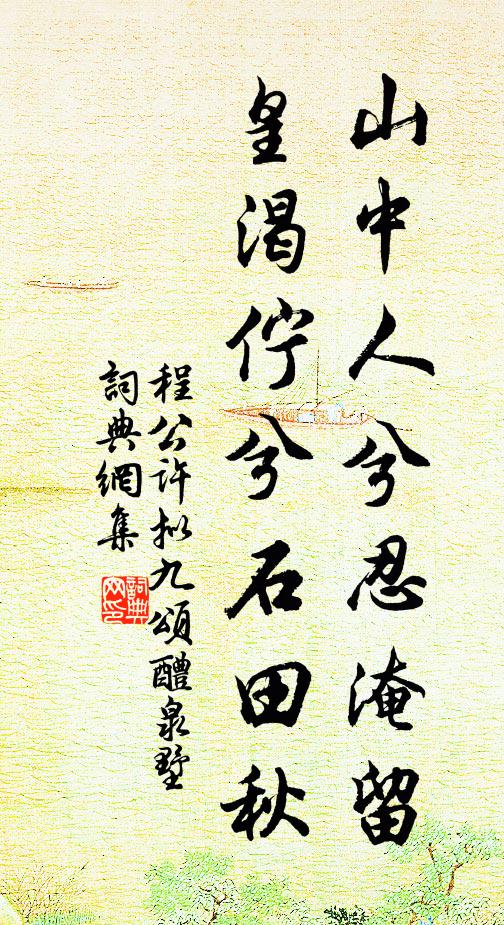 山中人兮忍淹留
皇渴佇兮石田秋
程公許拟九頌醴泉墅
詞典網集
詞典網印